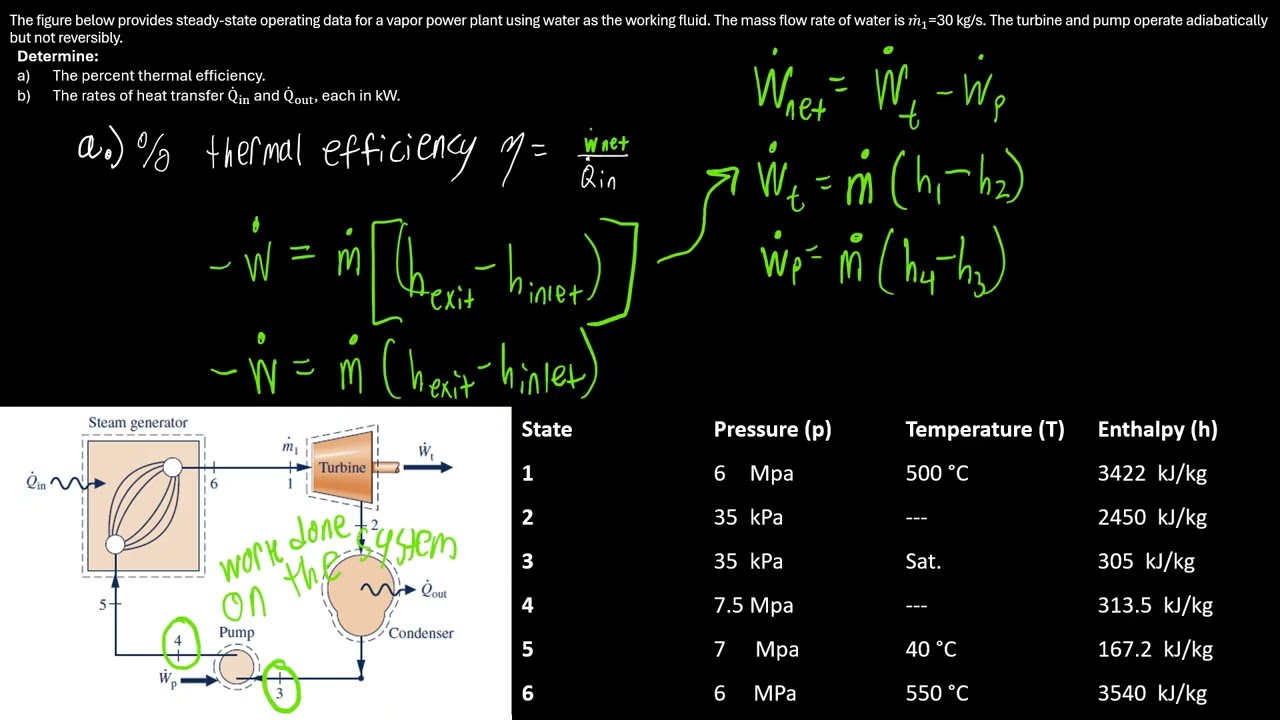 The figure below provides steady-state operating data for a vapor power plant using water as the working fluid. The mass flow rate of water is ṁ₁=30 kg/s. The turbine and pump operate adiabatically
but not reversibly.
Determine:
a) The percent thermal efficiency.
b) The rates of heat transfer Q̇in and Q̇out, each in kW.
a.) % thermal efficiency η = ẇnet / Q̇in
- Ẇ = ṁ [(hexit - hinlet)]
- Ẇ = ṁ (hexit - hinlet)
Ẇnet = Ẇt - Ẇp
Ẇt = ṁ (h1 - h2)
Ẇp = ṁ (h4 - h3)
Steam generator
Q̇in
6
ṁ₁
1
Turbine
Ẇt
2
work done
on the system
Q̇out
Condenser
5
4
Pump
Ẇp
3
State Pressure (p) Temperature (T) Enthalpy (h)
1 6 Mpa 500 °C 3422 kJ/kg
2 35 kPa --- 2450 kJ/kg
3 35 kPa Sat. 305 kJ/kg
4 7.5 Mpa --- 313.5 kJ/kg
5 7 Mpa 40 °C 167.2 kJ/kg
6 6 MPa 550 °C 3540 kJ/kg